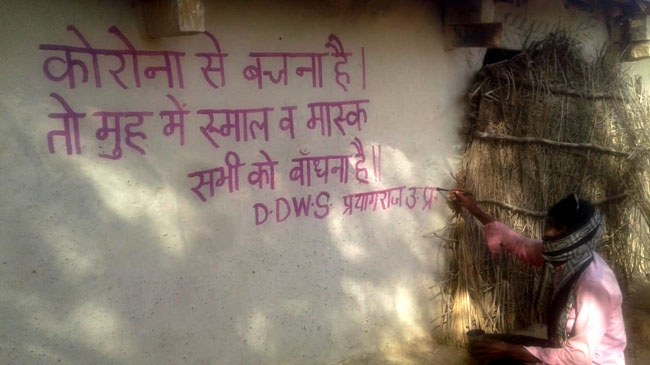 कोरोना से बचना है।
तो मुह में रुमाल व मास्क
सभी को बाँधना है॥
D.D.W.S. प्रयागराज उ.प्र.